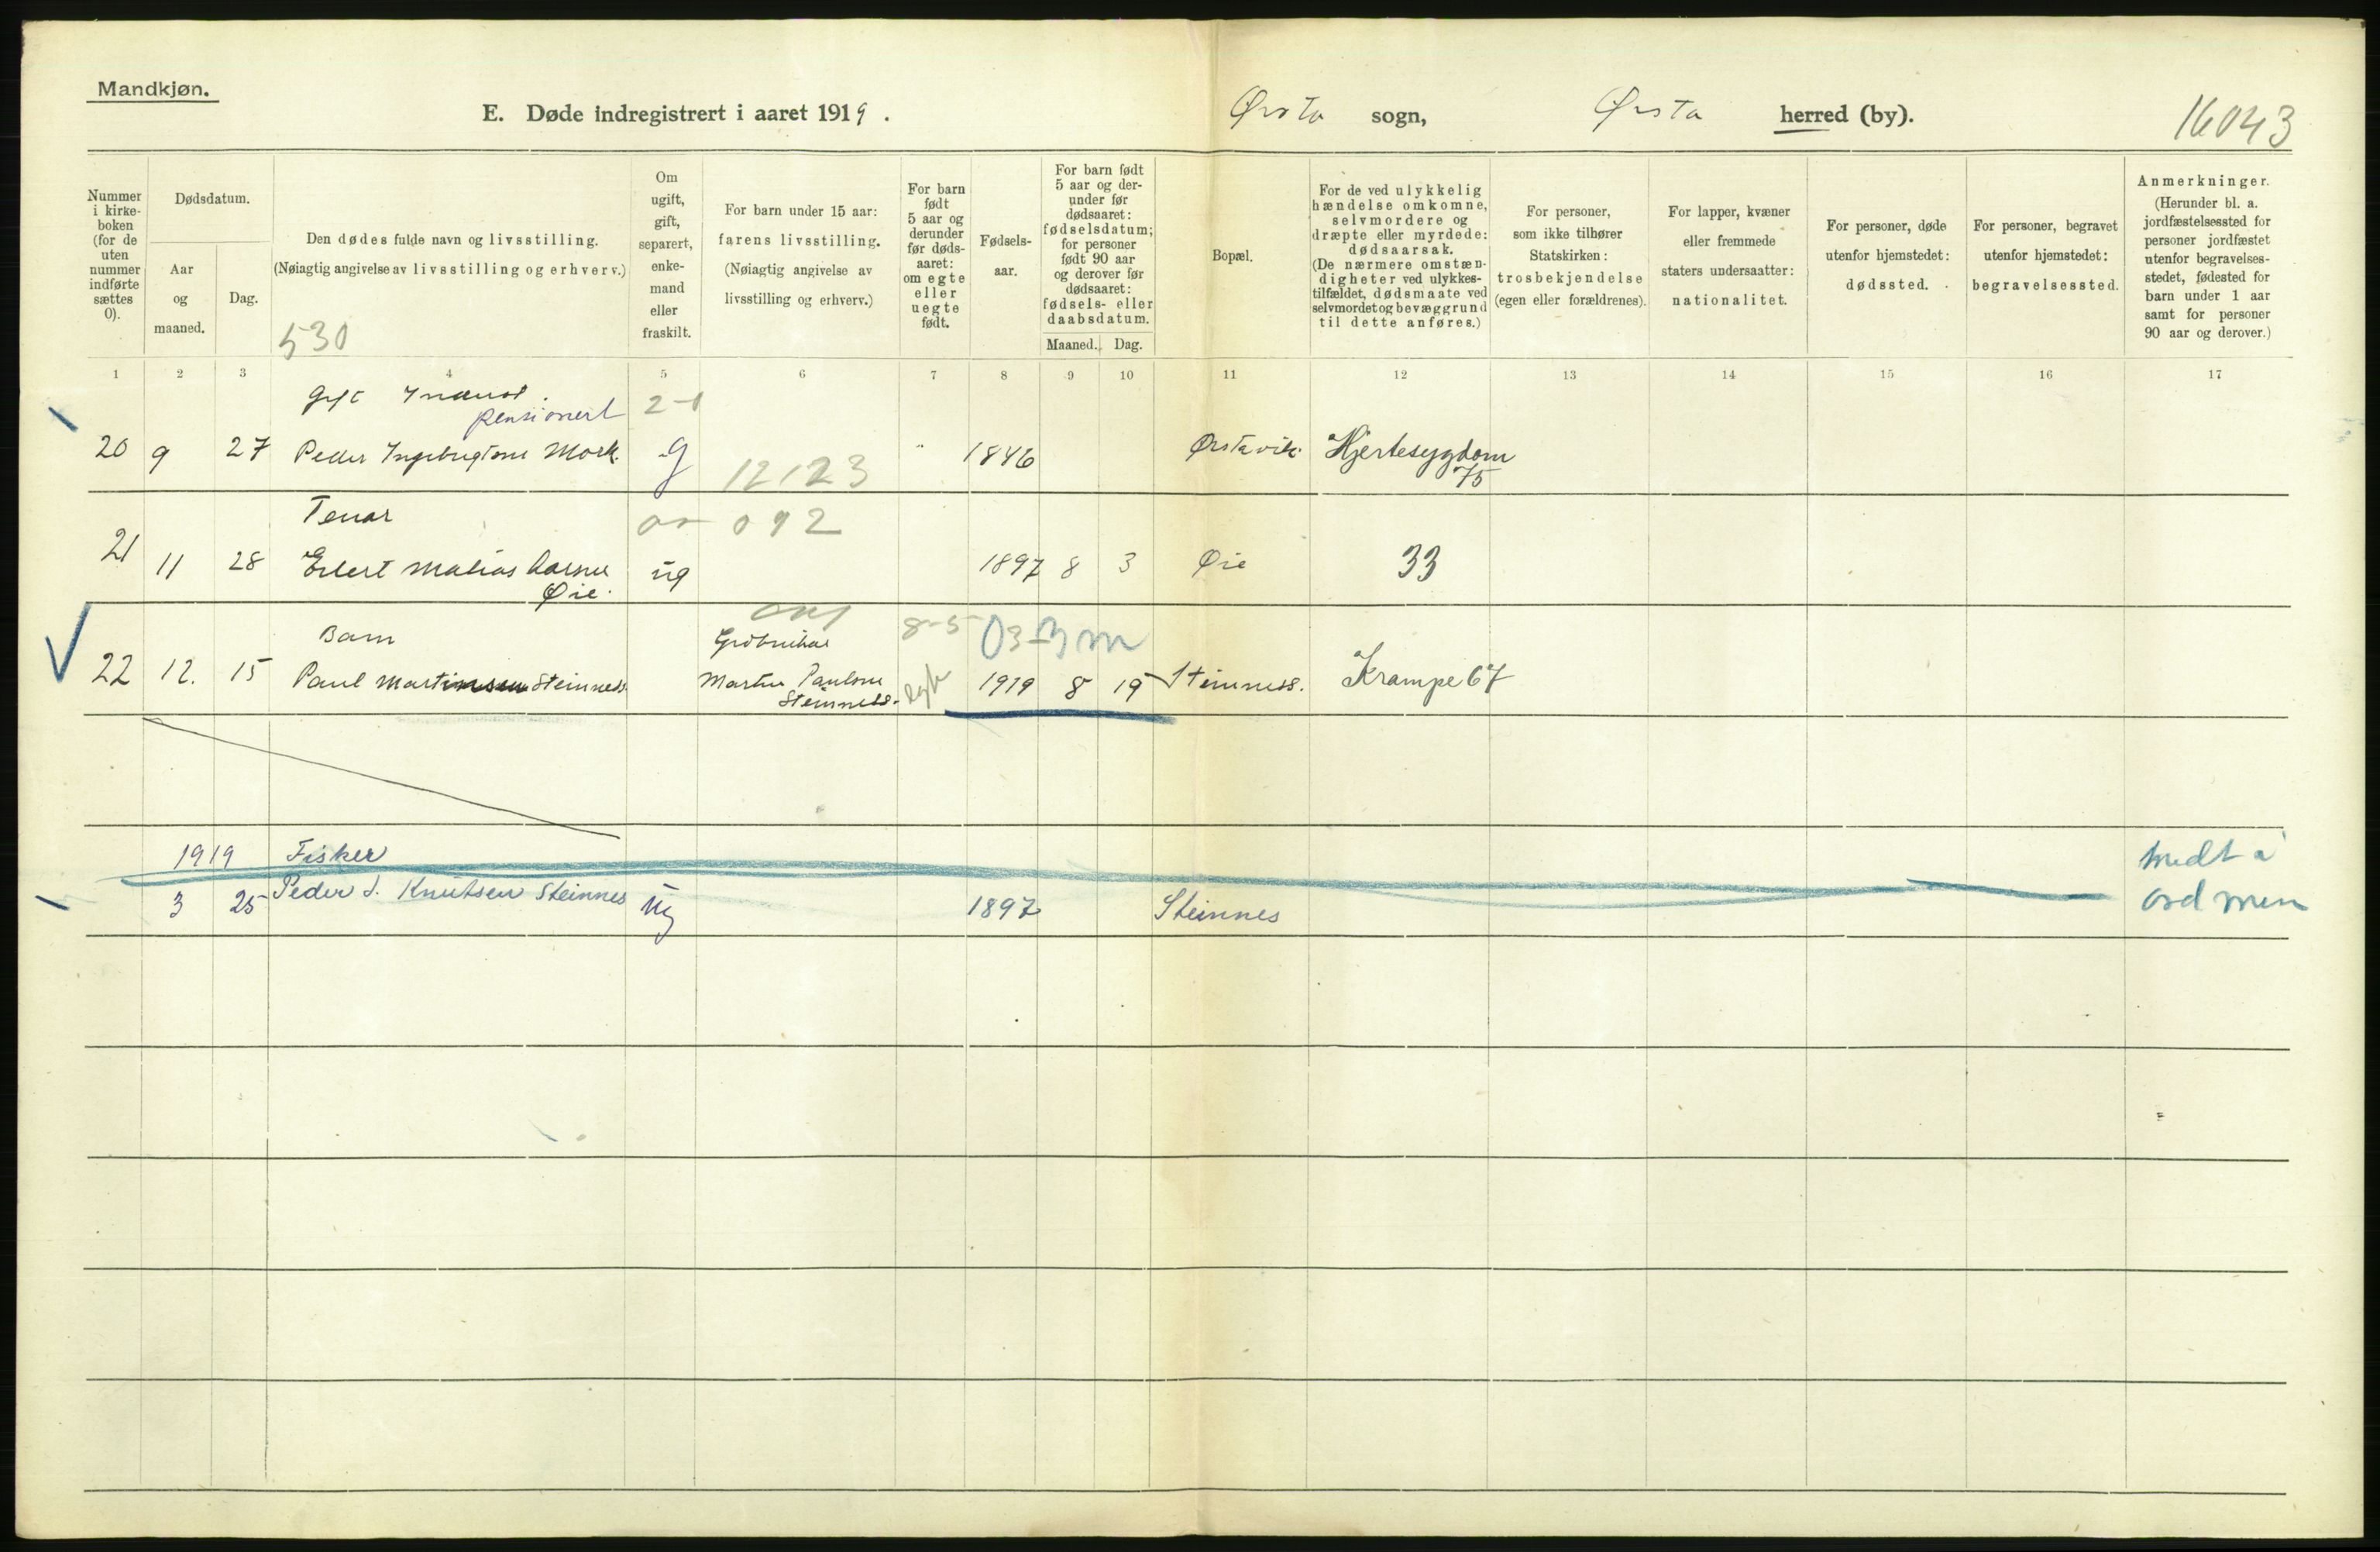 Mandkjøn.
E. Døde indregistrert i aaret 1919.
Ørsta sogn, Ørsta herred (by).
16043
Nummer i kirke- boken (for de uten nummer indførte sættes 0).
Dødsdatum.
Aar og maaned.
Dag.
Den dødes fulde navn og livsstilling.
(Nøiagtig angivelse av livsstilling og erhverv.)
530
Om ugift, gift, separert, enke- mand eller fraskilt.
For barn under 15 aar: farens livsstilling. (Nøiagtig angivelse av livsstilling og erhverv.)
For barn født 5 aar og derunder før døds- aaret: om egte eller uegte født.
Fødsels- aar.
For barn født 5 aar og der- under før dødsaaret: fødselsdatum; for personer født 90 aar og derover før dødsaaret: fødsels- eller daabsdatum.
Maaned. Dag.
Bopæl.
For de ved ulykkelig hændelse omkomne, selvmordere og dræpte eller myrdede: dødsaarsak. (De nærmere omstæn- digheter ved ulykkes- tilfældet, dødsmaate ved selvmordet og bevæggrund til dette anføres.)
For personer, som ikke tilhører Statskirken: trosbekjendelse (egen eller forældrenes).
For lapper, kvæner eller fremmede staters undersaatter: nationalitet.
For personer, døde utenfor hjemstedet: dødssted.
For personer, begravet utenfor hjemstedet: begravelsessted.
Anmerkninger. (Herunder bl. a. jordfæstelsessted for personer jordfæstet utenfor begravelses- stedet, fødested for barn under 1 aar samt for personer 90 aar og derover.)
1 2 3 4 5 6 7 8 9 10 11 12 13 14 15 16 17
pensionert 2-1
20 9 27 Peder Mork. g 12123 " 1846 Ørstavik. Hjertesygdom
75
092
21 11 28 Matias ug 1897 8 3 Øie 33
Øie.
Barn 8-5 03-3m
22 12. 15 Paul Martinsen Steinness Martin Paulsen 1919 8 19 Steinness. Krampe 67
Steinness.
1919 Fisker
3 25 Peder J. Knutsen Steinnes ug 1897 Steinnes
medt a
ord men